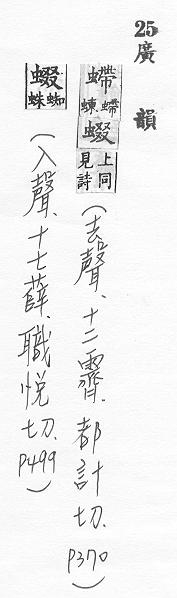 25 廣韻
螮 螮蝀 蝃 上同見詩 (去聲.十二霽.都計切.P370)
蝃 蜘蛛 (入聲.十七薛.職悅切.P499)